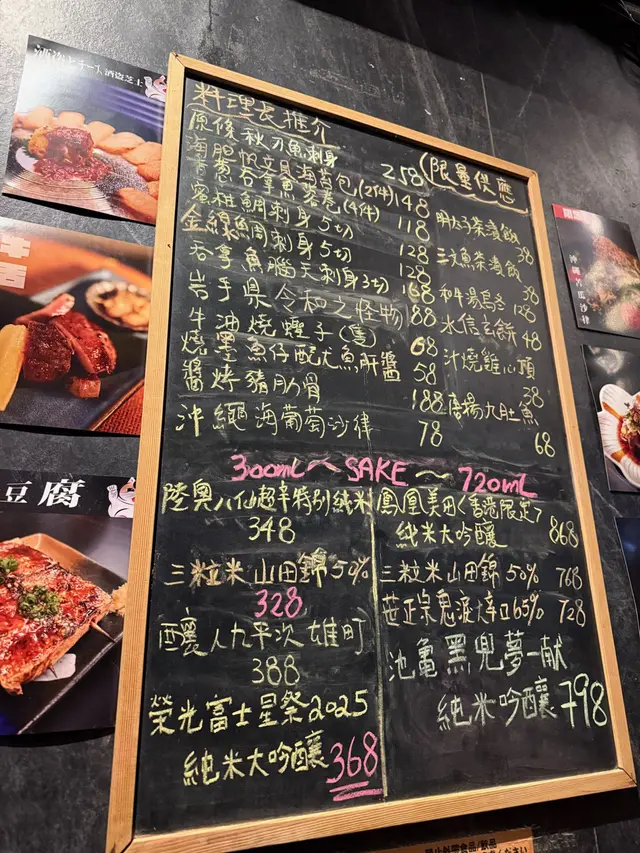 酒盗芝士
料理長推介
原條秋刀魚刺身 258
海胆帆立貝海苔包(2件) 148
青黃吞拿魚蓉卷(4件) 118
蜜柑鯛刺身 5切 128
金線魚刺身 5切 128
吞拿魚腦天刺身 3切 168
岩手県令和之怪物 88
牛油燒蟶子(隻) 68
燒墨魚仔配尤魚肝醬 58
醬烤豬肋骨 188
沖繩海葡萄沙律 78
限量供應
明太子茶漬飯 38
三文魚茶漬飯 38
和牛湯烏冬 128
水信玄餅 48
汁燒雞心頭 38
唐揚九肚魚 68
300mL SAKE 720mL
陸奥八仙超辛特別純米
348
三粒米山田錦50%
328
釀人九平次 雄町
388
榮光富士星祭2025
純米大吟釀 368
鳳凰美田(香港限定)
純米大吟釀 868
三粒米山田錦 50% 768
笹正宗鬼渡大辛口65% 728
池亀黑兜夢一献
純米吟釀 798
牛舌
豆腐
沖繩苦瓜沙律